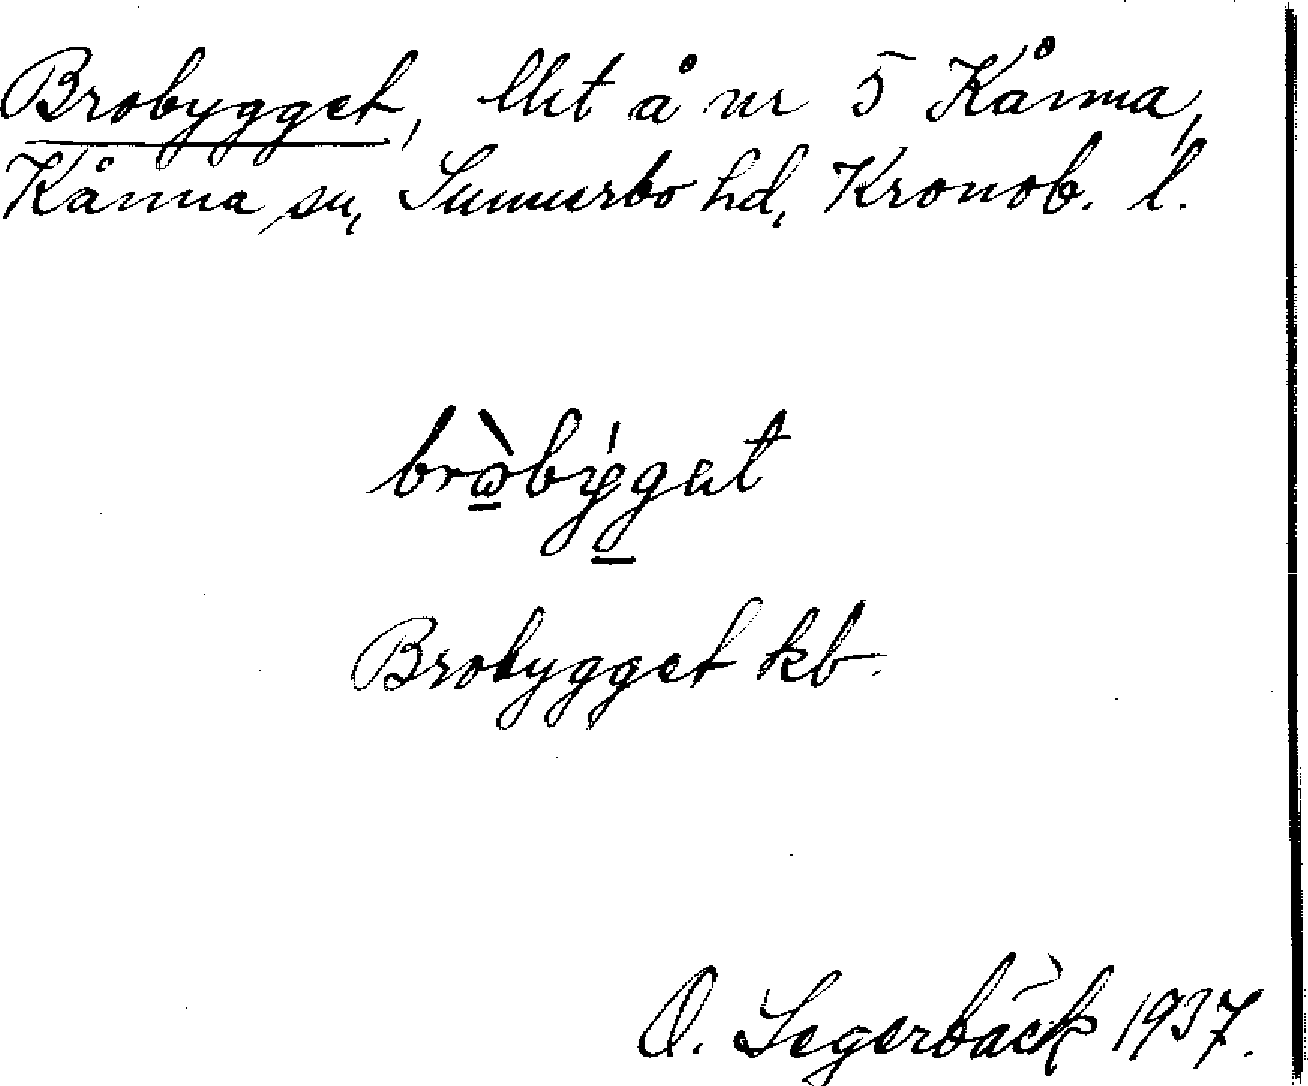 Brobygget, lht å nr 5 Kånna,
Kånna sn, Sunnerbo hd, Kronob. l.
bròbýgat
Brobygget kb.
O. Segerbäck 1937.